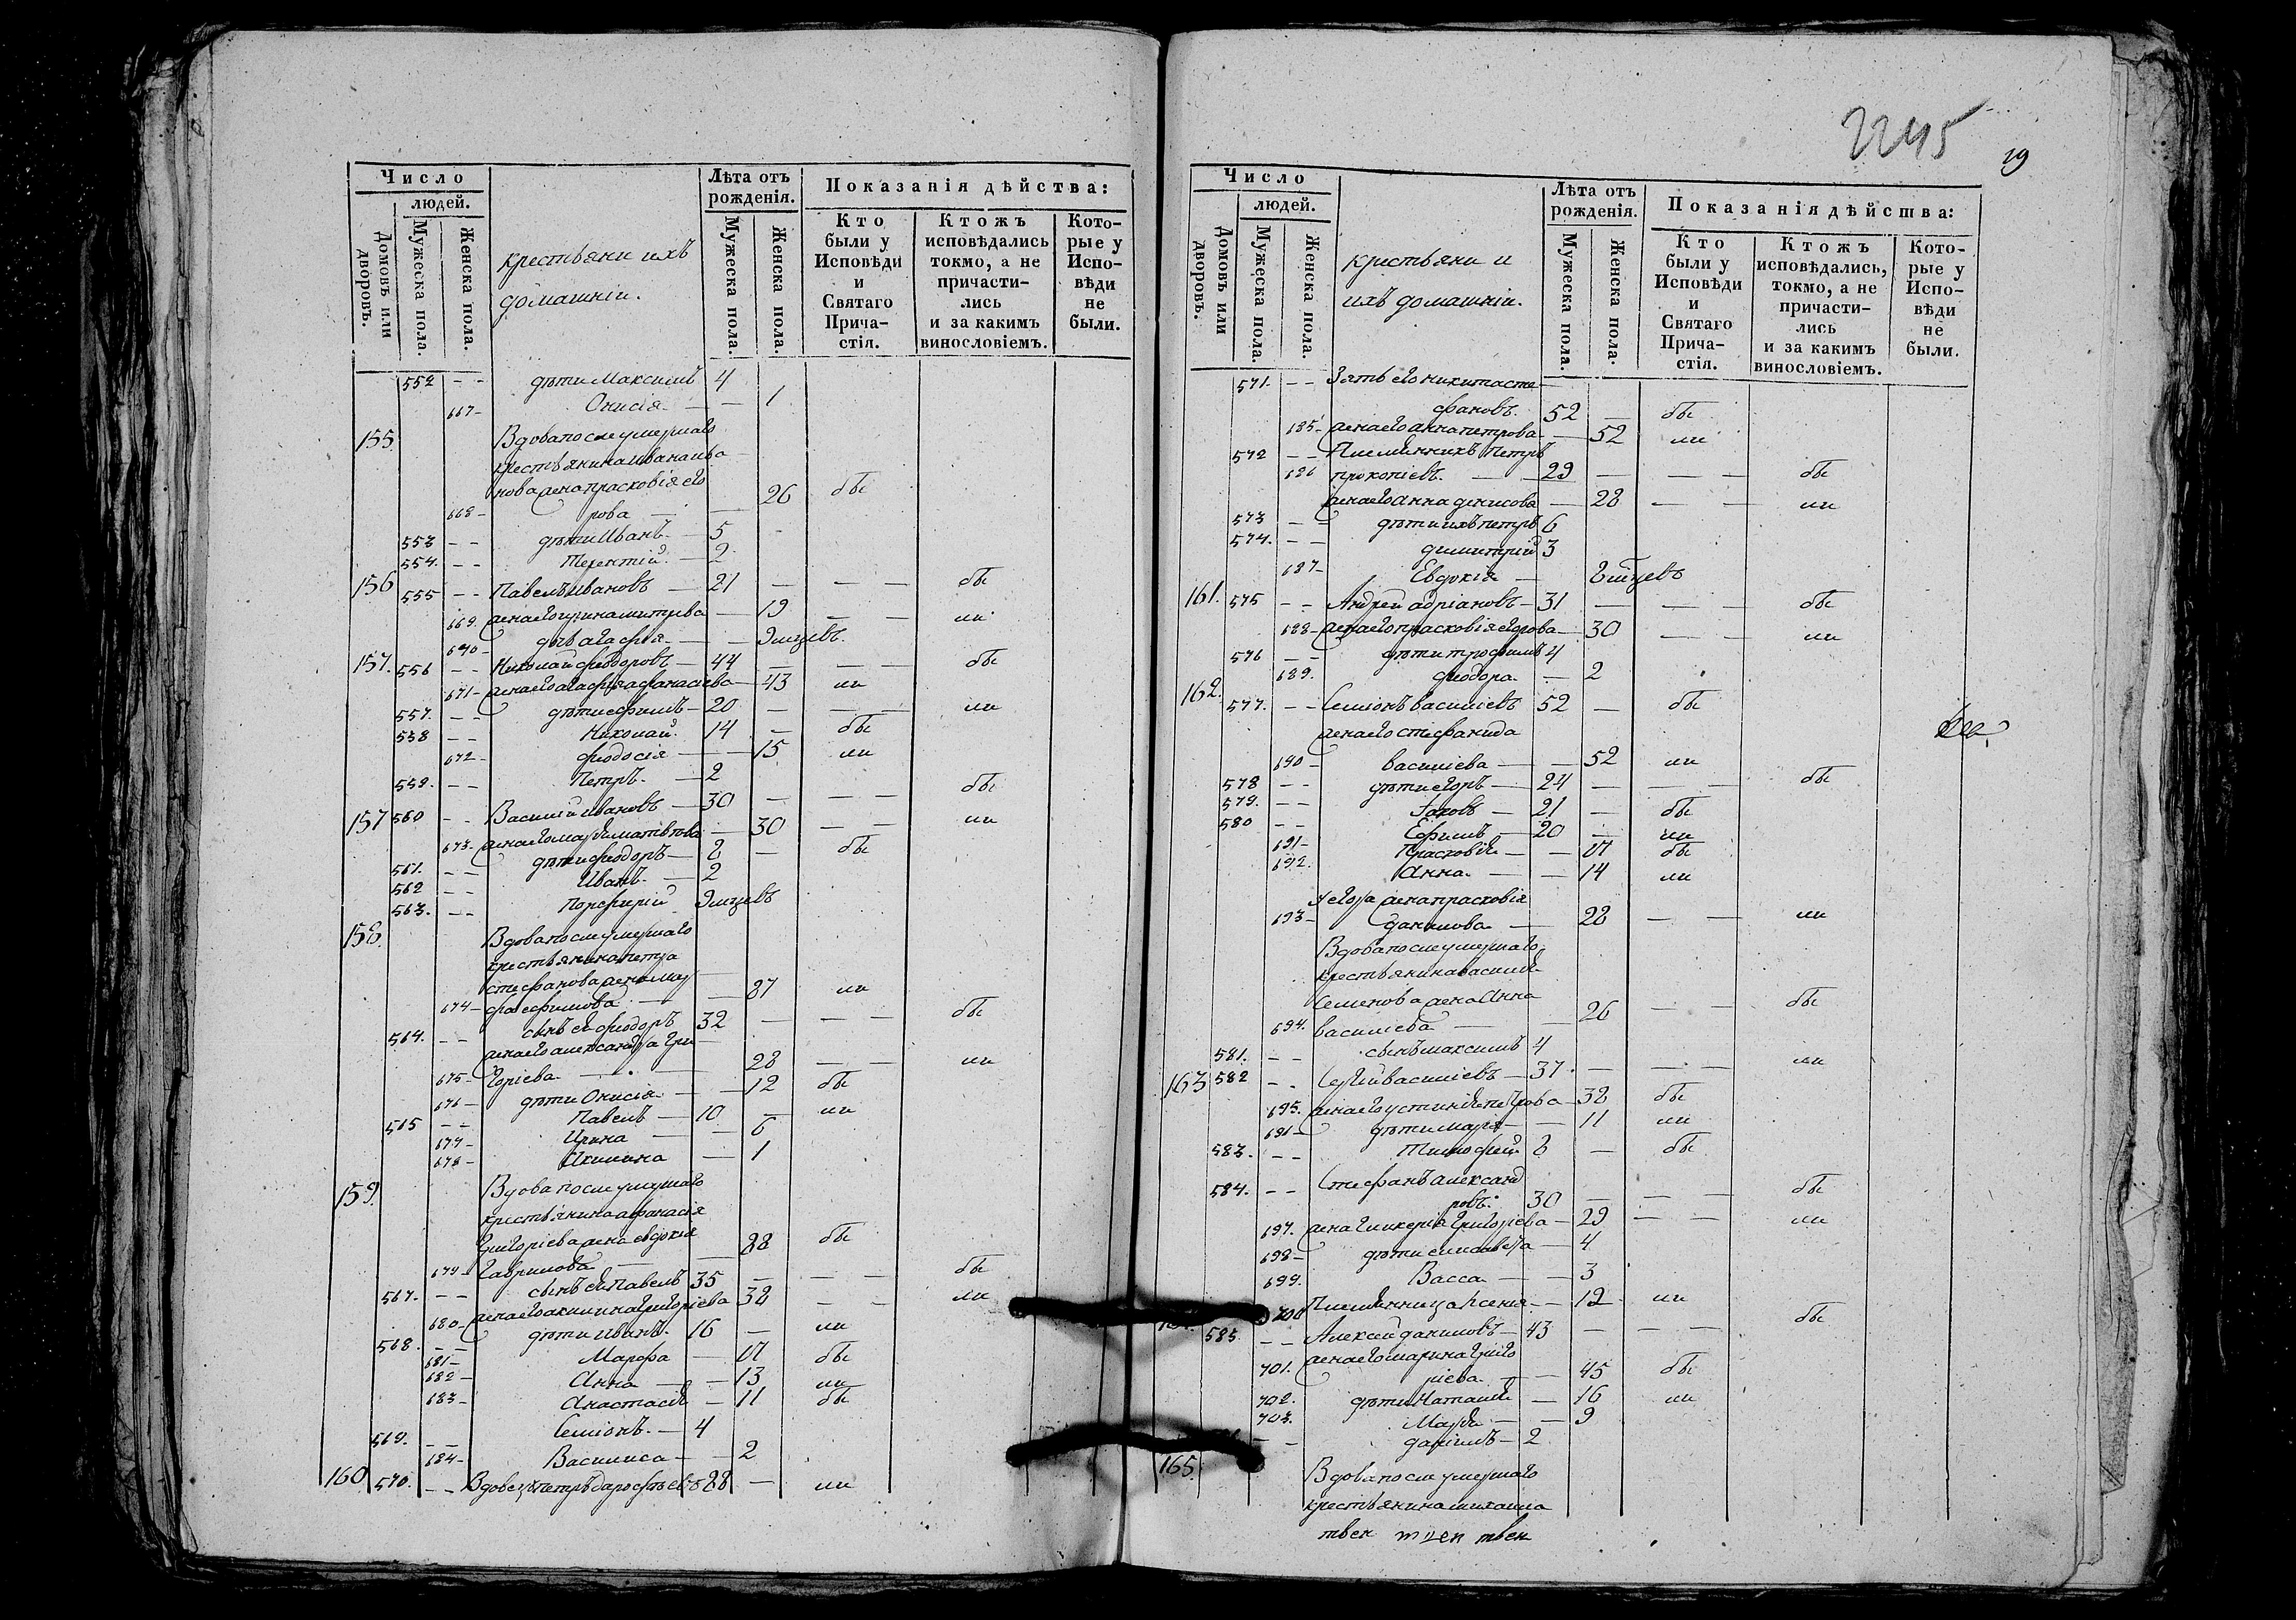 2245
19
Число
людей.
Домовъ или дворовъ.
Мужеска пола.
Женска пола.
крестьяни ихъ
домашнии.
Лѣта отъ
рожденія.
Мужеска пола.
Женска пола.
Показанія дѣйства:
Кто
были у
Исповѣди
и
Святаго
Прича-
стія.
Ктожъ
исповѣдались
токмо, а не
причасти-
лись
и за какимъ
винословіемъ.
Кото-
рые у
Испо-
вѣди
не
были.
552 - - дѣти Максимъ 4
667 - Онисія — — 1
155 Вдова после умершаго
крестьянина ивана ива
нова жена прасковія его
668 - рова — — 26 бы
553 - - дѣти Иванъ — 5
554. - - Терентій — 2
156 555 - - Павелъ ивановъ — 21 — — — бы
669. жена его ирина митрева — 19 — — ли
670 - дочь агафия — — 9 мцевъ
157. 556 - - Николай феодоровъ — 44 — — — бы
671 - жена его агафия афанасиева — 43 ли
557. - - дѣти ефимъ — 20 — — — ли
558 - - Николай 14 — бы
672 - феодосія — — 15 ли
559. - - Петръ — 2
157 560 - - Василий ивановъ — 30 — — — бы
673 - жена его марья матвѣева — 30 — — ли
561. - - дѣти феодоръ — 8 — бы
562 - - Иванъ — 2
563. - - Порфирий 9 мцевъ
158. Вдова после умершаго
крестьянина петра
стефанова жена мар
674 - фа ефимова — — 87 ли
564. - - сынъ ея феодоръ 32 — — — бы
жена его александра гри
675 - горіева — — 28 — — ли
676 - дѣти Онисія — — 12 бы
565 - - Павелъ — 10 — ли
677 - Ирина — — 6
678 - Акилина — 1
159. Вдова после умершаго
крестьянина афанасія
григоріева жена евдокія
679 - гаврилова — — 88 бы
567. - - сынъ ея Павелъ 35 — — — бы
680 - жена его акилина григоріева 38 — — ли
568. - - дѣти иванъ 16 — ли
681 - Марфа — 17 бы
682 - Анна — — 13 ли
683 - Анастасія — 11 бы
569. - - Семіонъ — 4
684 - Василиса — — 2
160 570. - - Вдовецъ петръ дорофѣевъ 88 — ли
Число
людей.
Домовъ или дворовъ.
Мужеска пола.
Женска пола.
крестьяни и
ихъ домашнии.
Лѣта отъ
рожденія.
Мужеска пола.
Женска пола.
Показанія дѣйства:
Кто
были у
Исповѣди
и
Святаго
Прича-
стія.
Ктожъ
исповѣдались,
токмо, а не
причасти-
лись
и за какимъ
винословіемъ.
Кото-
рые у
Испо-
вѣди
не
были.
571. - - Зять его никита сте
фановъ 52 — бы
685 - жена его анна петрова — 52 ли
572 - - Племянникъ Петръ
686 прокопіевъ — 29 — — — бы
жена его анна денисова — 28 — — ли
573 - - дѣти ихъ петръ 6
574. - - димитрий 3
687 - Евдокія — 8 мцевъ
161. 575 - - Андрей адріановъ — 31 — — — бы
688 - жена его прасковія егорова — 30 — — ли
576 - - дѣти трофимъ 4
689. феодора — 2
162. 577. - - Семіонъ василіевъ 52 — бы
жена его стефанида
690 - василіева — — 52 ли
578 - - дѣти егоръ — 24 — — — бы
579. - - Іаковъ — 21 — бы
580 - - Ефимъ — 20 — ли
691 - Прасковія — — 17 бы
692. Анна — — 14 ли
у егора жена прасковія
693 - данилова — 28 — — ли
Вдова после умершаго
крестьянина василія
Семенова жена Анна
694. василіева — — 26 — — бы
581. - - сынъ максимъ 4
163 582 - - Сергей василіевъ — 37 — — — ли
695. жена его устинія петрова — 38 бы
696 - дѣти марія — — 11 ли
583. - - Тимофей 8 — бы
584. - - Стефанъ александ
ровъ 30 — — — бы
697. жена гликерія григоріева — 29 — — ли
698 - дѣти елисавета — 4
699. Васса — — 3
700 Племянница ксенія — — 12 ли
585 - - Алексей даниловъ — 43 — — — бы
701. жена его марина григо
ріева — — 45 бы
702. дѣти Наталия — 16 ли
703. Марія — — 9
- - даніилъ — 2
165. Вдова после умершаго
крестьянина михаила